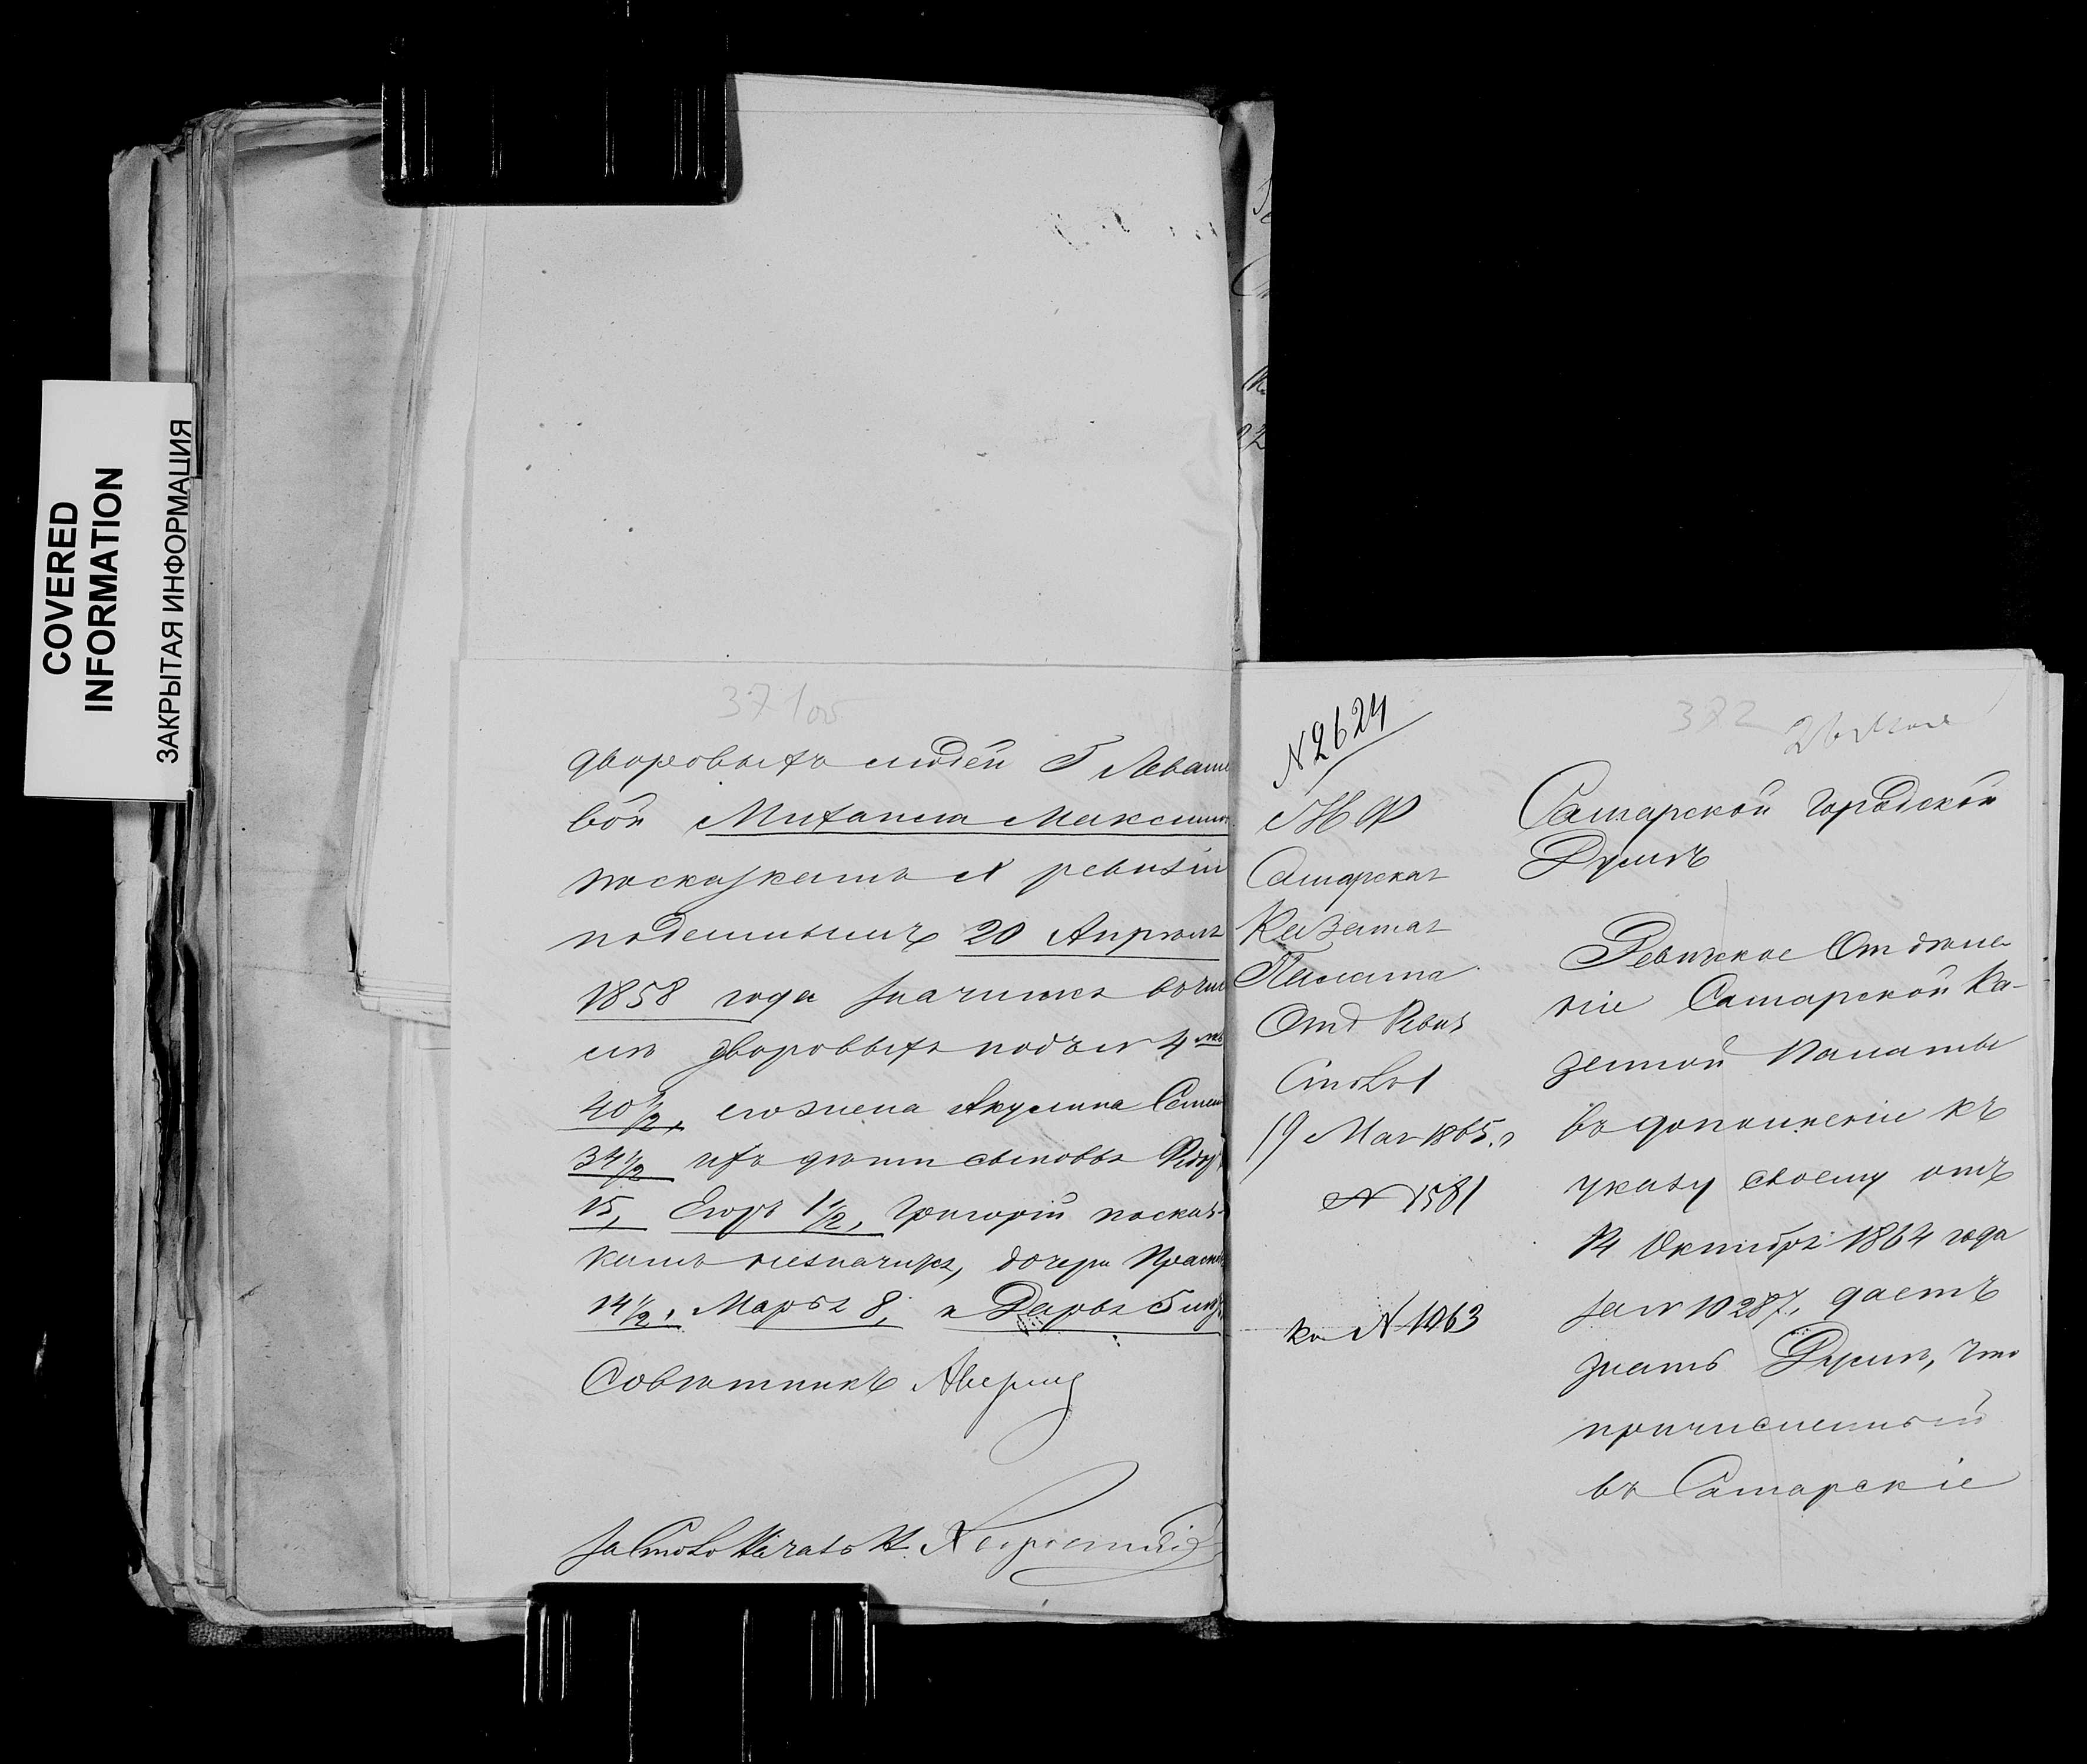 COVERED
INFORMATION
ЗАКРЫТАЯ ИНФОРМАЦИЯ
371об
дворовыхъ людей Г Леваше
вой Михаила Максимов
по сказкамъ X ревизіи
поданнымъ 20 Апрѣля
1858 года значится въ чис
лѣ дворовыхъ подъ № 4мъ
40 1/2, его жена Акулина Семен
34 1/2 ихъ дѣти сыновья Федоръ
15, Егоръ 1 1/2, Григорій по сказ-
камъ незначится, дочери Праск
14 1/2, Марья 8, и Дарья 5 лѣтъ
Совѣтникъ Аверин
За Столо Начальн.
372
26 Мая
№ 2624
М Ф
Самарская
Казенная
Палата
Отд Ревиз
Столъ 1
19 Мая 1865 г
№ 1581
къ № 1063
Самарской Городской
Думѣ
Ревижское Отдѣле
ніе Самарской Ка-
зенной Палаты
въ дополненіе къ
указу своему отъ
14 Октября 1864 года
за № 10287, даетъ
знать Думѣ, что
причисленный
въ Самарскіе